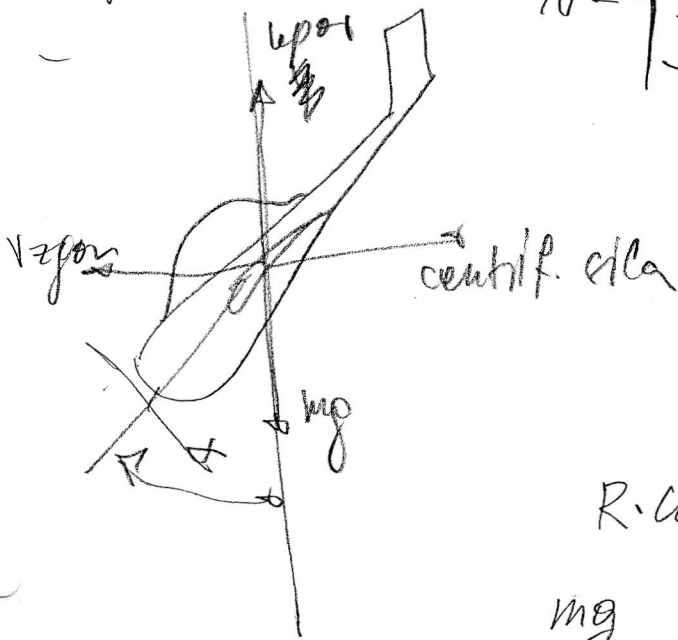 upor
N =
Vzgon
centrif. sila
mg
α
R.C
mg